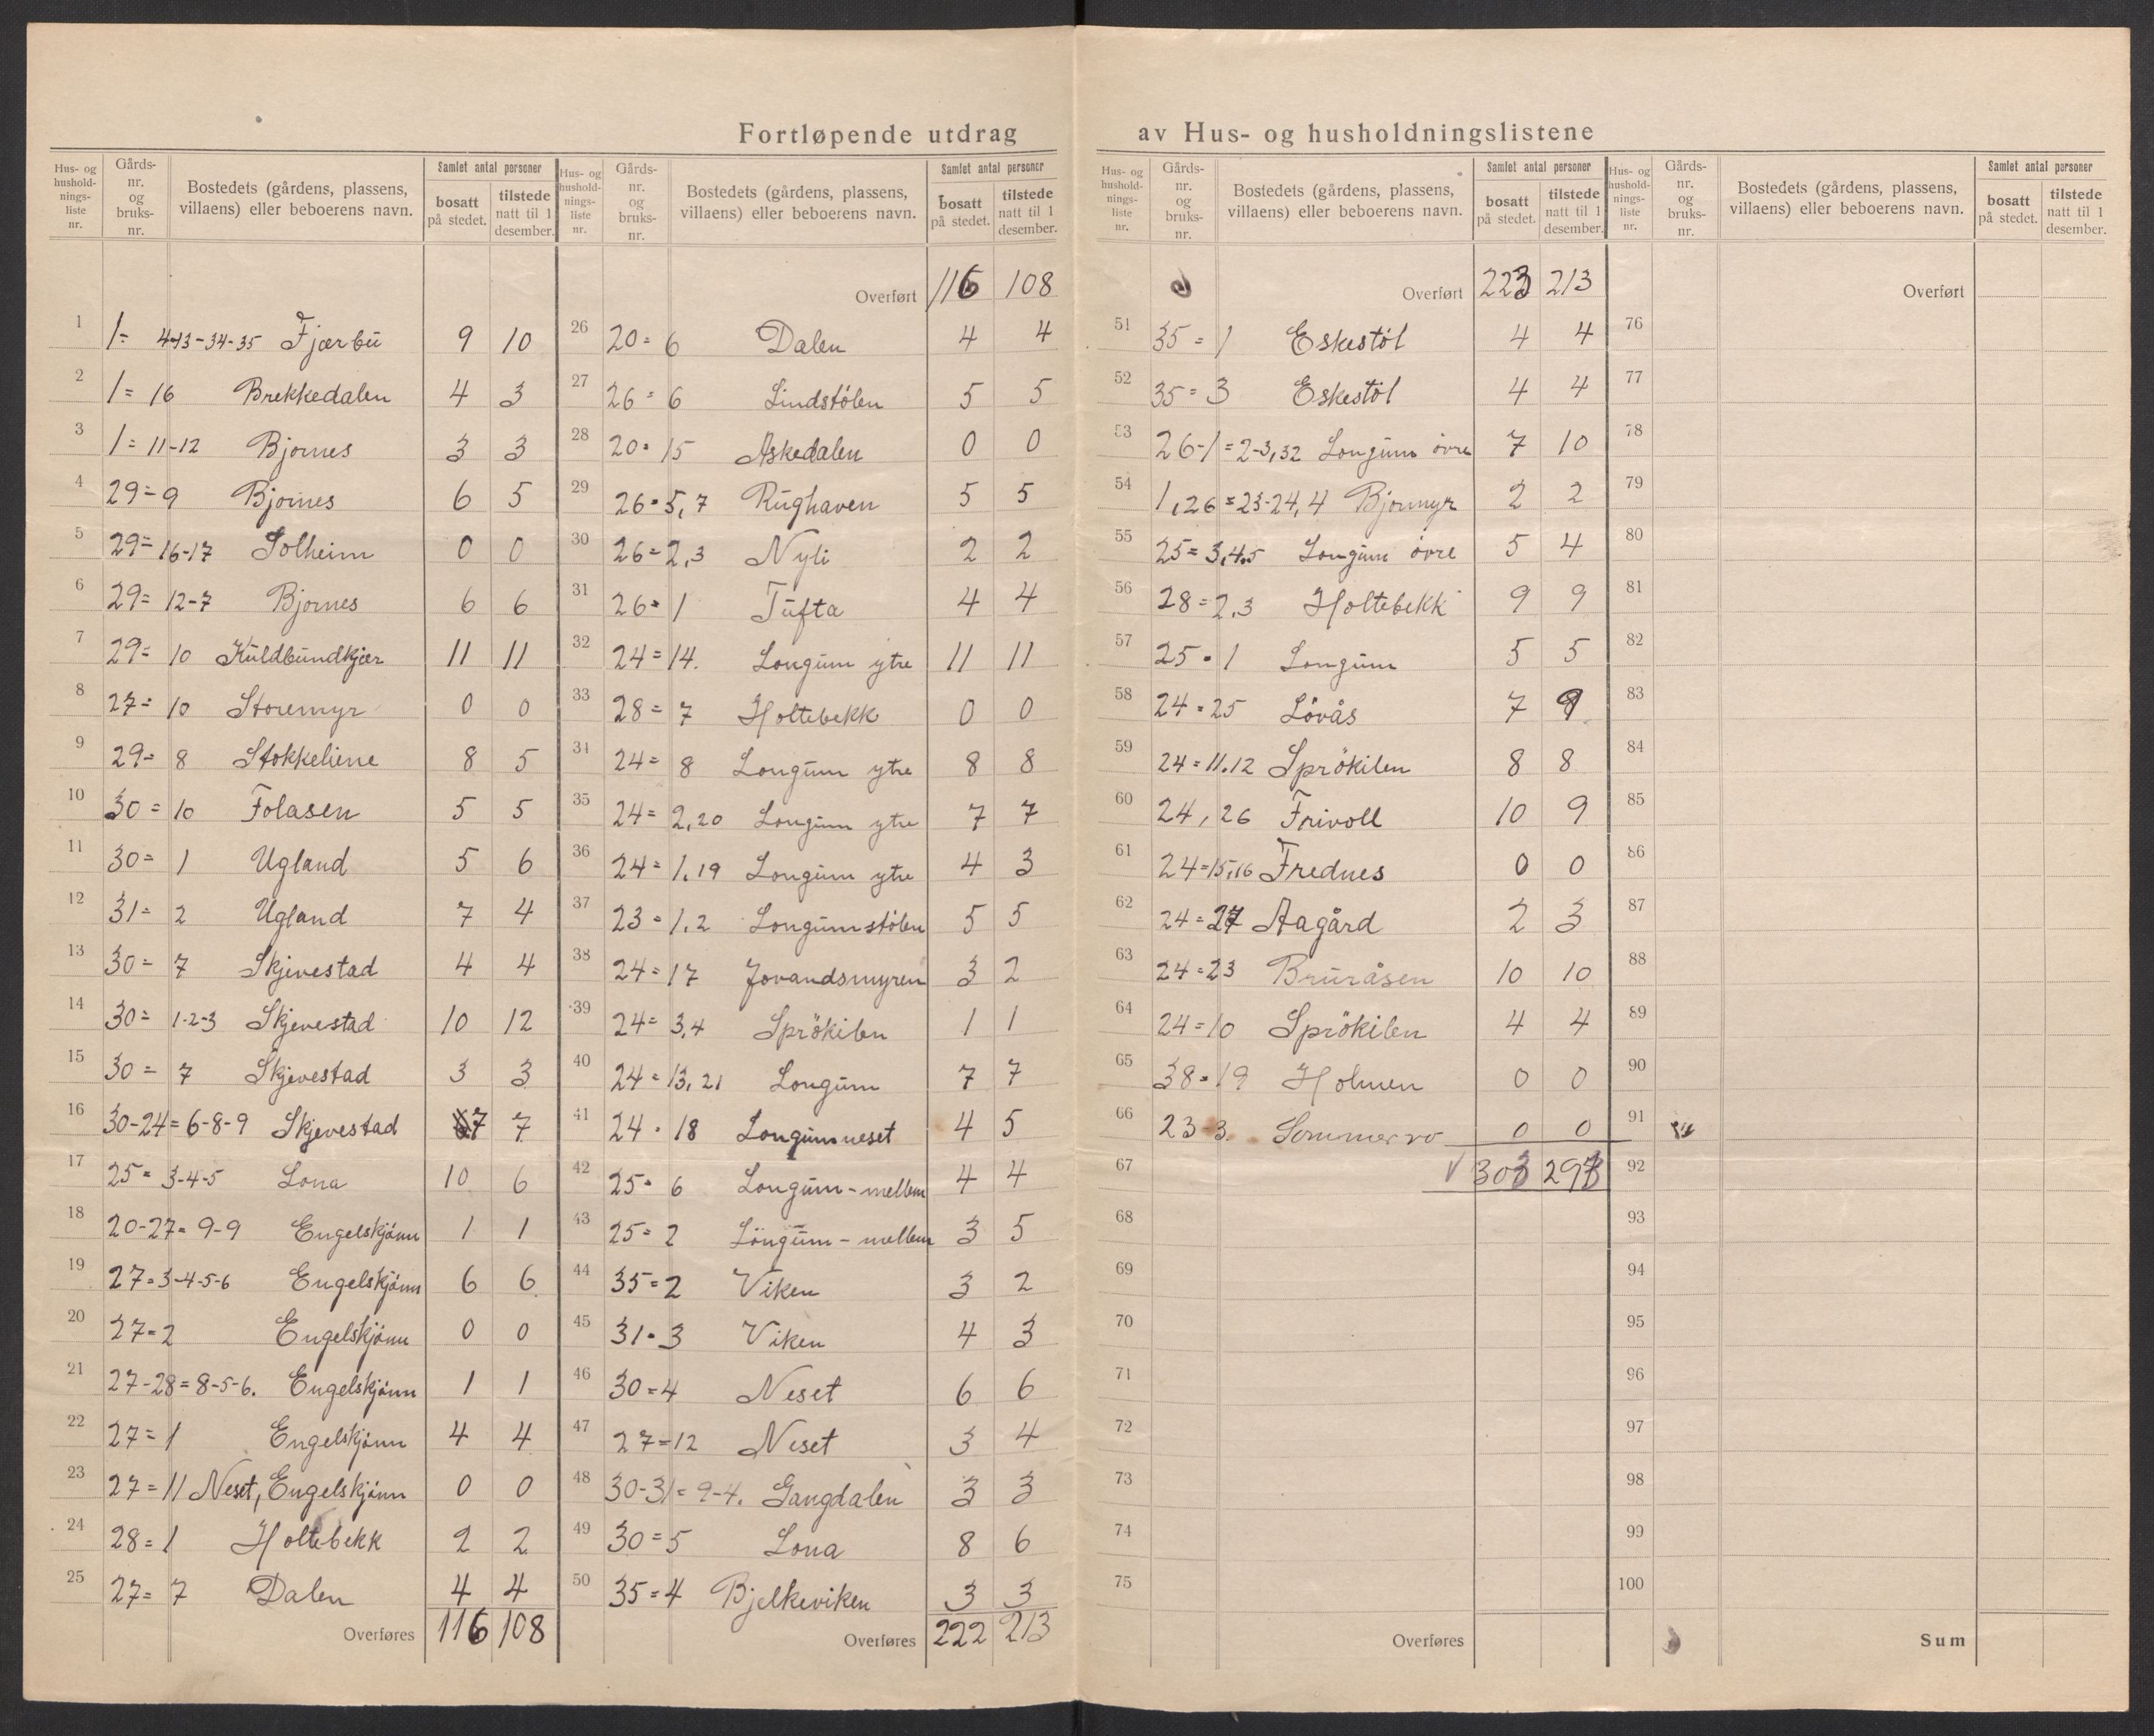 Fortløpende utdrag av Hus- og husholdningslistene
Hus- og hushold-nings-liste nr. Gårds-nr. og bruks-nr. Bostedets (gårdens, plassens, villaens) eller beboerens navn. Samlet antal personer bosatt på stedet. tilstede natt til 1 desember.
1 1- 4-13-34-35 Fjærbu 9 10
2 1= 16 Brekkedalen 4 3
3 1= 11-12 Bjornes 3 3
4 29=9 Bjornes 6 5
5 29= 16-17 Solheim 0 0
6 29= 12-7 Bjornes 6 6
7 29= 10 Kuldbundkjær 11 11
8 27= 10 Storemyr 0 0
9 29= 8 Stokkeliene 8 5
10 30= 10 Folasen 5 5
11 30= 1 Ugland 5 6
12 31= 2 Ugland 7 4
13 30= 7 Skjevestad 4 4
14 30= 1-2-3 Skjevestad 10 12
15 30= 7 Skjevestad 3 3
16 30-24=6-8-9 Skjevestad 7 7
17 25= 3-4-5 Lona 10 6
18 20-27=9-9 Engelskjønn 1 1
19 27=3-4-5-6 Engelskjønn 6 6
20 27=2 Engelskjønn 0 0
21 27-28=8-5-6. Engelskjønn 1 1
22 27=1 Engelskjønn 4 4
23 27=11 Neset, Engelskjønn 0 0
24 28=1 Holtebekk 2 2
25 27= 7 Dalen 4 4
Overføres 116 108
Hus- og hushold-nings-liste nr. Gårds-nr. og bruks-nr. Bostedets (gårdens, plassens, villaens) eller beboerens navn. Samlet antal personer bosatt på stedet. tilstede natt til 1 desember.
Overført 116 108
26 20= 6 Dalen 4 4
27 26= 6 Lindstølen 5 5
28 20= 15 Askedalen 0 0
29 26=5,7 Rughaven 5 5
30 26=2,3 Nyli 2 2
31 26=1 Tufta 4 4
32 24=14. Longum ytre 11 11
33 28= 7 Holtebekk 0 0
34 24= 8 Longum ytre 8 8
35 24= 2,20 Longum ytre 7 7
36 24= 1,19 Longum ytre 4 3
37 23= 1,2 Longumstølen 5 5
38 24=17 Jovandsmyren 3 2
39 24= 3,4 Sprökilen 1 1
40 24= 13,21 Longum 7 7
41 24. 18 Longumneset 4 5
42 25= 6 Longum-mellem 4 4
43 25= 2 Longum-mellem 3 5
44 35=2 Viken 3 2
45 31=3 Viken 4 3
46 30=4 Neset 6 6
47 27=12 Neset 3 4
48 30-31=9-4. Gangdalen 3 3
49 30=5 Lona 8 6
50 35=4 Bjelkeviken 3 3
Overføres 222 213
Hus- og hushold-nings-liste nr. Gårds-nr. og bruks-nr. Bostedets (gårdens, plassens, villaens) eller beboerens navn. Samlet antal personer bosatt på stedet. tilstede natt til 1 desember.
Overført 223 213
51 35=1 Eskestøl 4 4
52 35=3 Eskestøl 4 4
53 26-1=2-3,32 Longum øvre 7 10
54 1,26=23-24,4 Bjormyr 2 2
55 25=3,4.5 Longum øvre 5 4
56 28=2.3 Holtebekk 9 9
57 25=1 Longum 5 5
58 24=25 Lövås 7 9
59 24=11.12 Sprökilen 8 8
60 24, 26 Frivoll 10 9
61 24=15,16 Frednes 0 0
62 24=27 Aagård 2 3
63 24=23 Bruråsen 10 10
64 24=10 Sprökilen 4 4
65 38=19 Holmen 0 0
66 23 3. Sommerro 0 0
67 V 303 293
68
69
70
71
72
73
74
75
Overføres
Hus- og hushold-nings-liste nr. Gårds-nr. og bruks-nr. Bostedets (gårdens, plassens, villaens) eller beboerens navn. Samlet antal personer bosatt på stedet. tilstede natt til 1 desember.
Overført
76
77
78
79
80
81
82
83
84
85
86
87
88
89
90
91
92
93
94
95
96
97
98
99
100
Sum